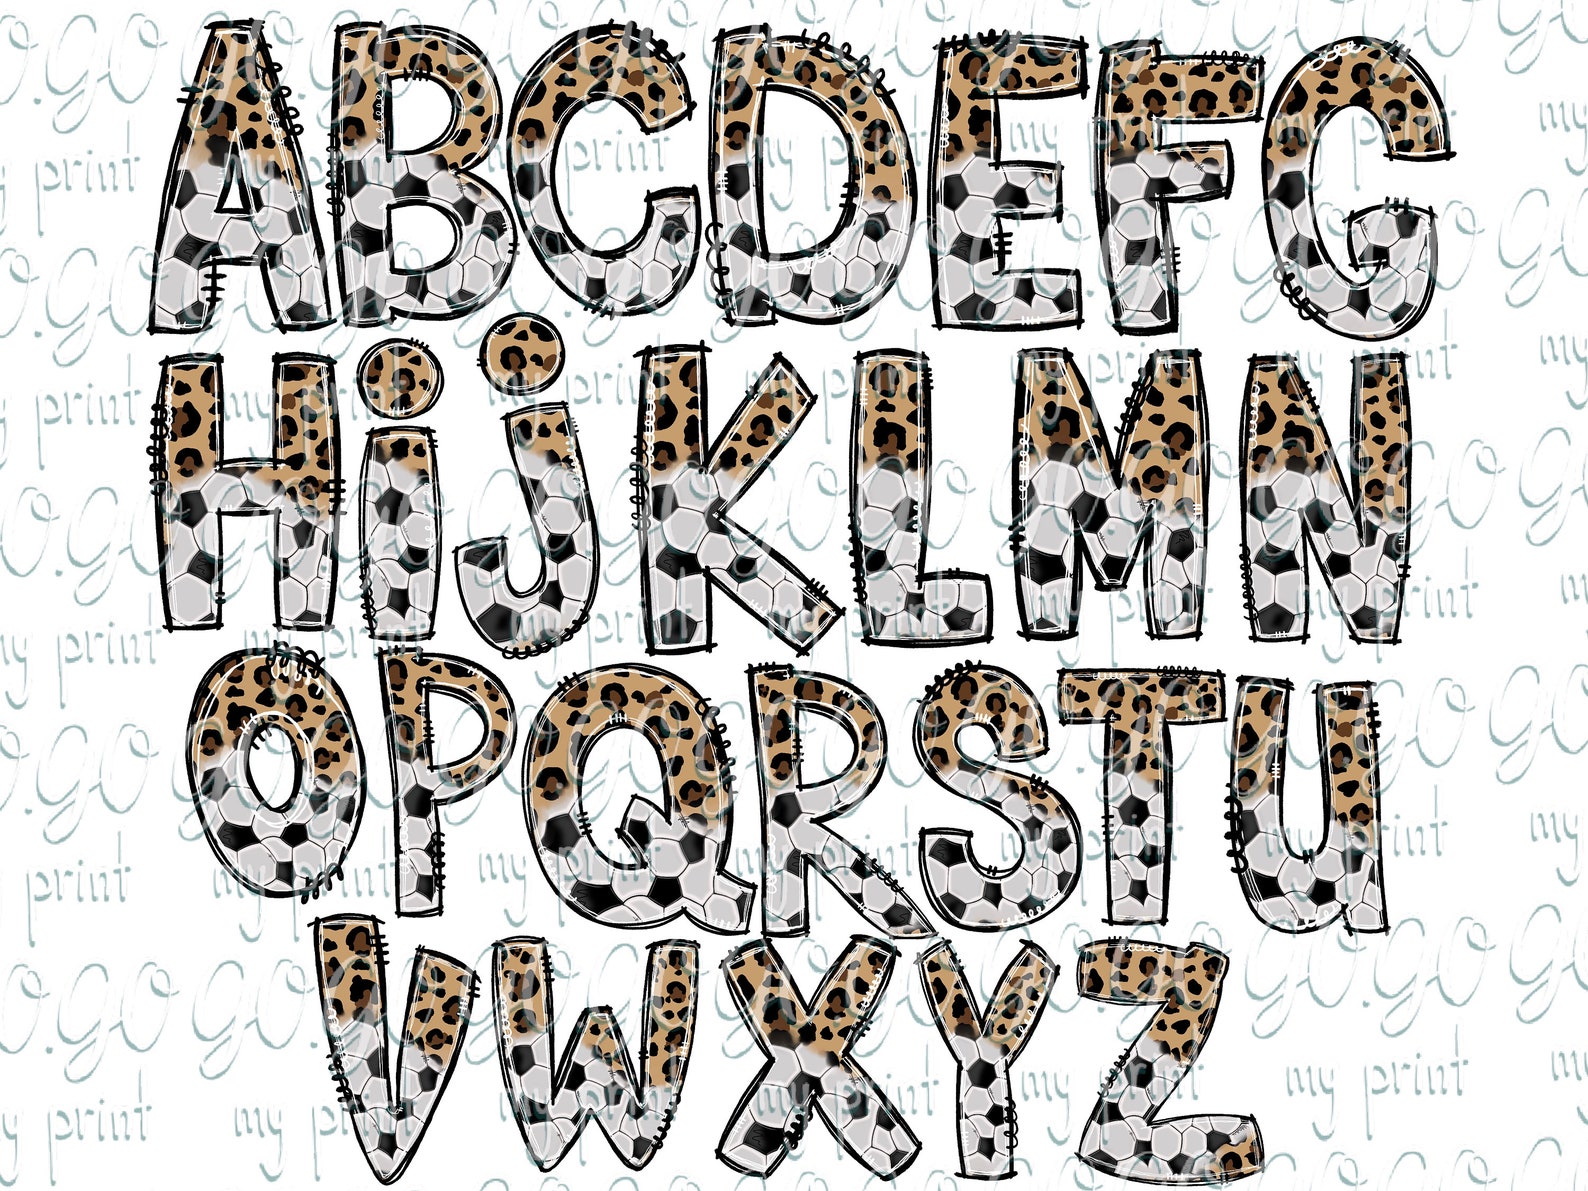 ABCDEFG
HijKLMN
OPQRSTU
VWXYZ
GO.GO
my print